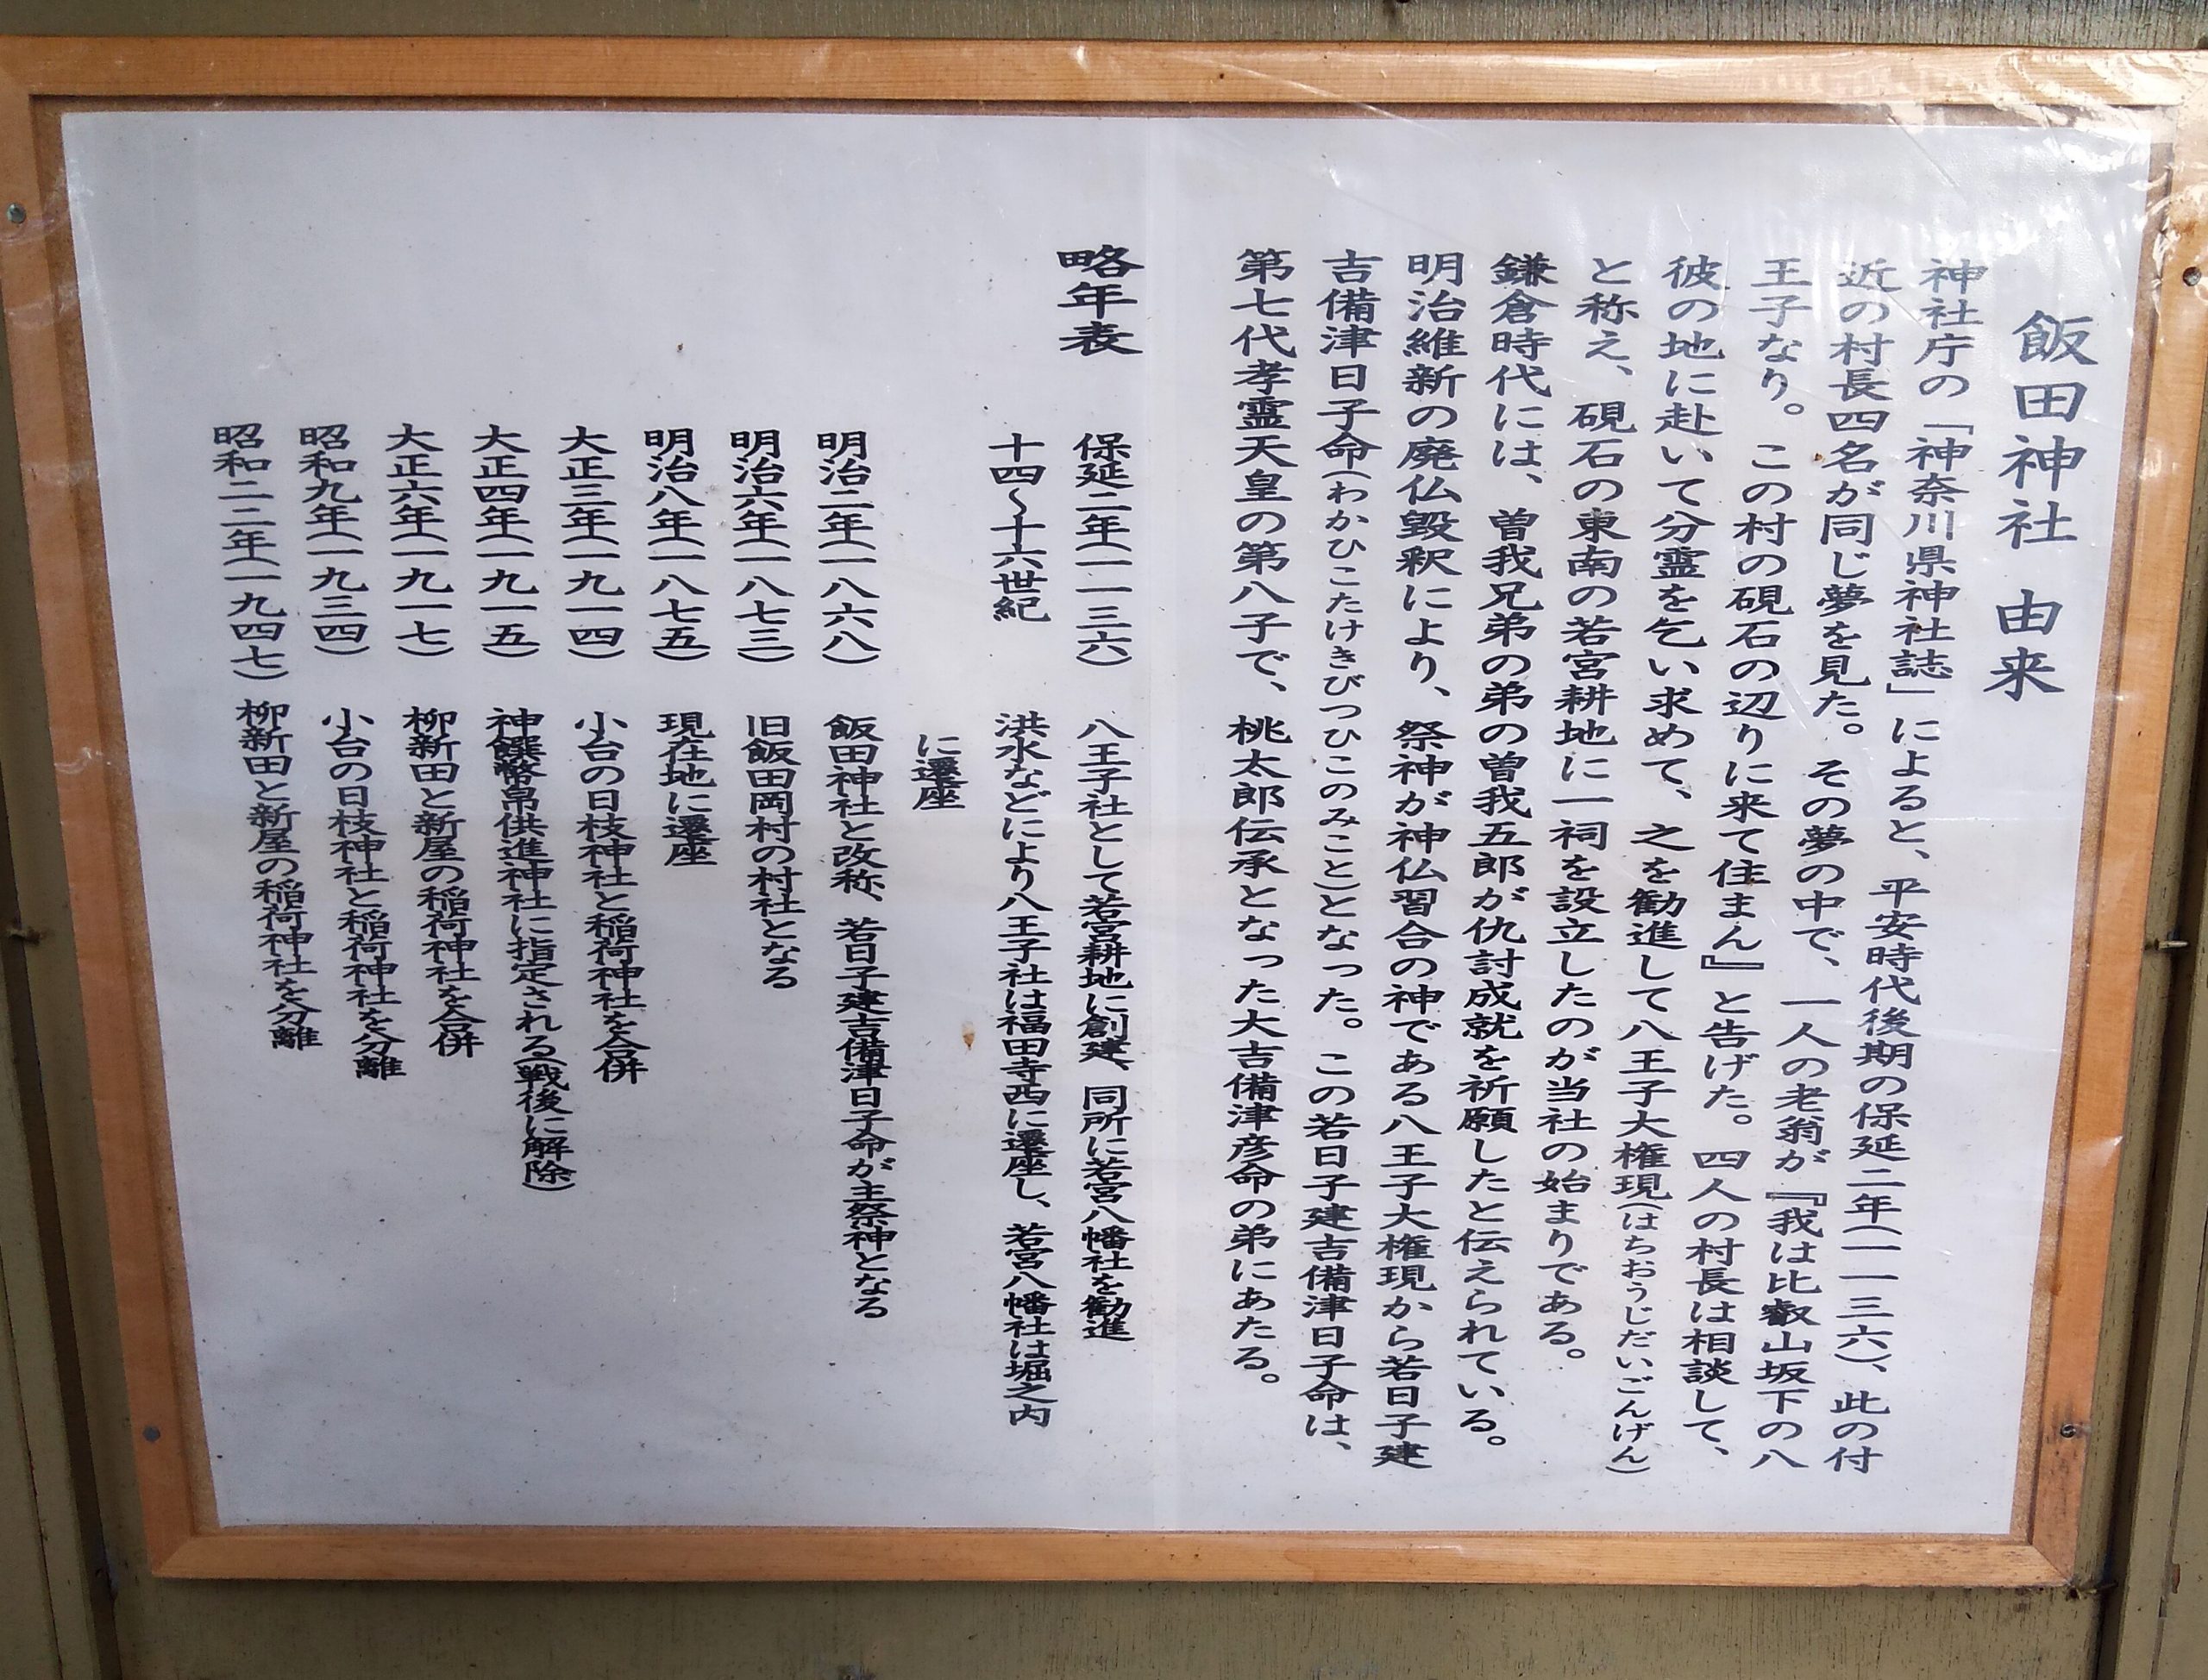 飯田神社 由来
神社庁の「神奈川県神社誌」によると、平安時代後期の保延二年(一一三六)、此の付
近の村長四名が同じ夢を見た。その夢の中で、一人の老翁が『我は比叡山坂下の八
王子なり。この村の硯石の辺りに来て住まん』と告げた。四人の村長は相談して、
彼の地に赴いて分霊を乞い求めて、之を勧進して八王子大権現(はちおうじだいごんげん)
と称え、硯石の東南の若宮耕地に一祠を設立したのが当社の始まりである。
鎌倉時代には、曽我兄弟の弟の曽我五郎が仇討成就を祈願したと伝えられている。
明治維新の廃仏毀釈により、祭神が神仏習合の神である八王子大権現から若日子建
吉備津日子命(わかひこたけきびつひこのみこと)となった。この若日子建吉備津日子命は、
第七代孝霊天皇の第八子で、桃太郎伝承となった大吉備津彦命の弟にあたる。
略年表
保延二年(一一三六) 八王子社として若宮耕地に創建、同所に若宮八幡社を勧進
十四〜十六世紀 洪水などにより八王子社は福田寺西に遷座し、若宮八幡社は堀之内
に遷座
明治二年(一八六八) 飯田神社と改称、若日子建吉備津日子命が主祭神となる
明治六年(一八七三) 旧飯田岡村の村社となる
明治八年(一八七五) 現在地に遷座
大正三年(一九一四) 小台の日枝神社と稲荷神社を合併
大正四年(一九一五) 神饌幣帛供進神社に指定される(戦後に解除)
大正六年(一九一七) 柳新田と新屋の稲荷神社を合併
昭和九年(一九三四) 小台の日枝神社と稲荷神社を分離
昭和二二年(一九四七) 柳新田と新屋の稲荷神社を分離